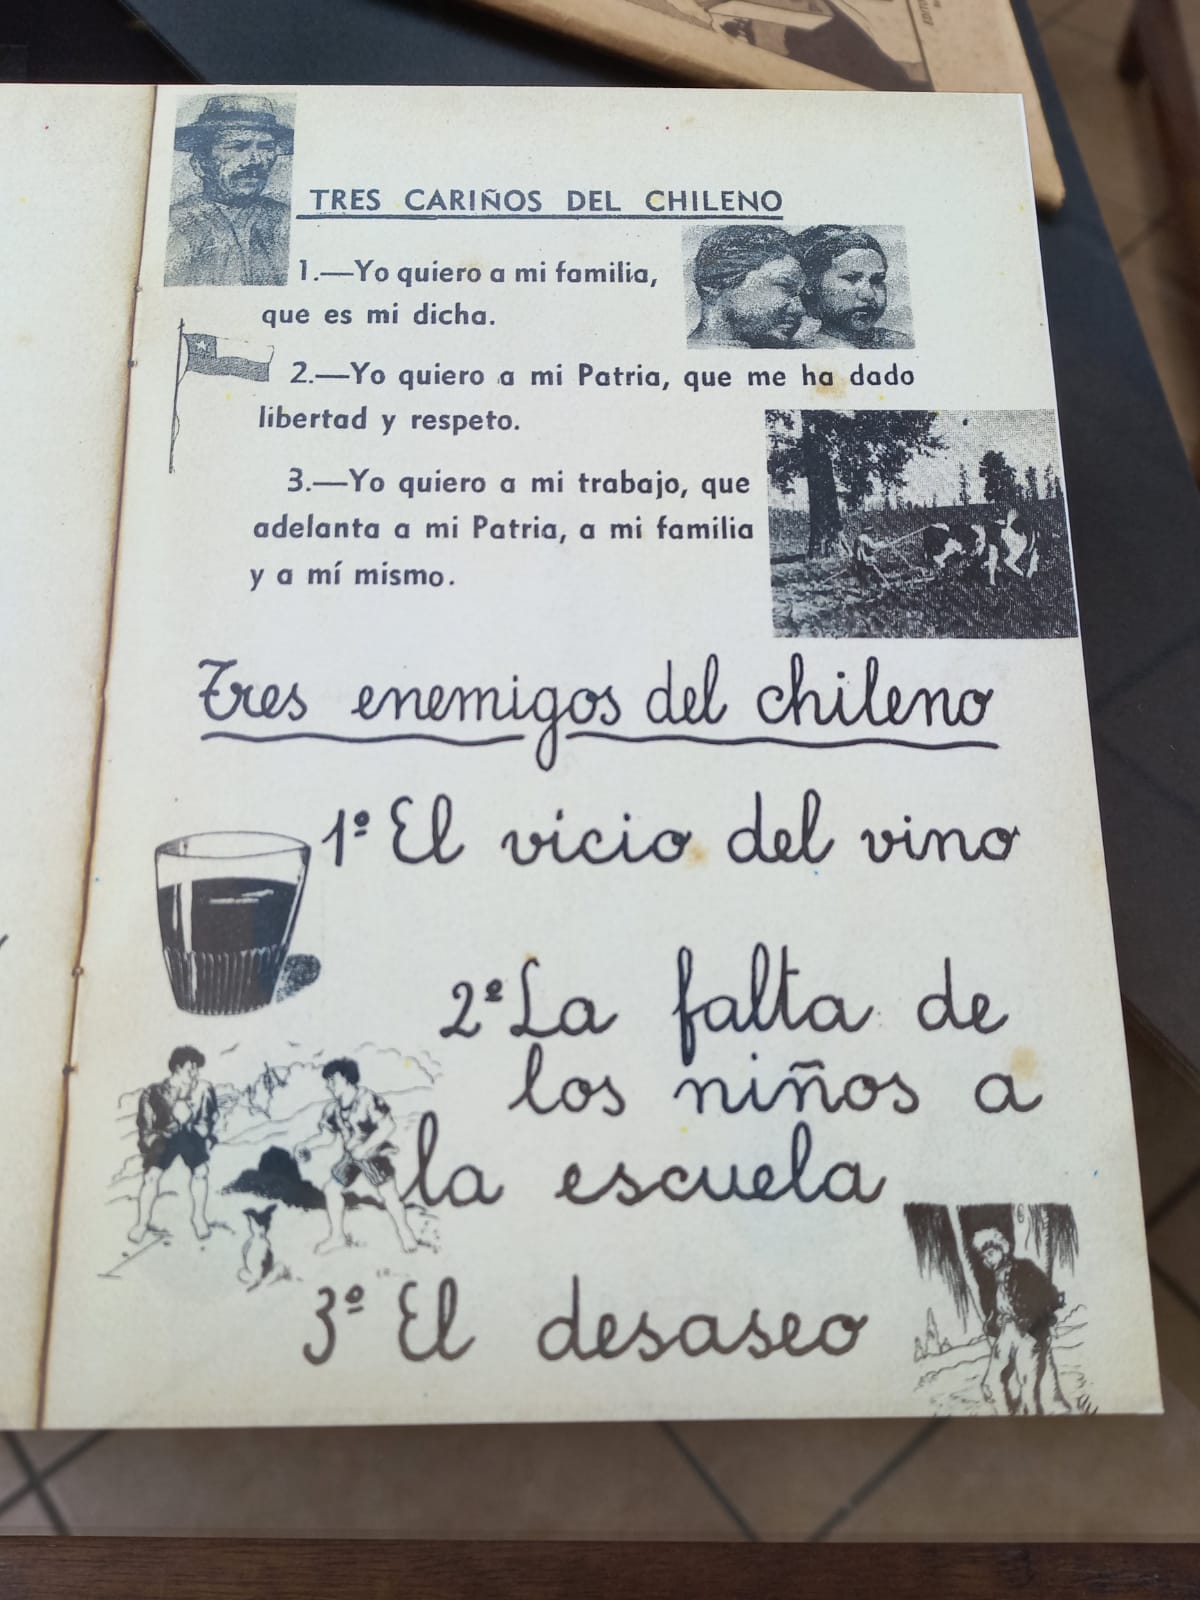 TRES CARIÑOS DEL CHILENO
1.—Yo quiero a mi familia,
que es mi dicha.
2.—Yo quiero a mi Patria, que me ha dado
libertad y respeto.
3.—Yo quiero a mi trabajo, que
adelanta a mi Patria, a mi familia
y a mí mismo.
Tres enemigos del chileno
1º El vicio del vino
2º La falta de
los niños a
la escuela
3º El desaseo